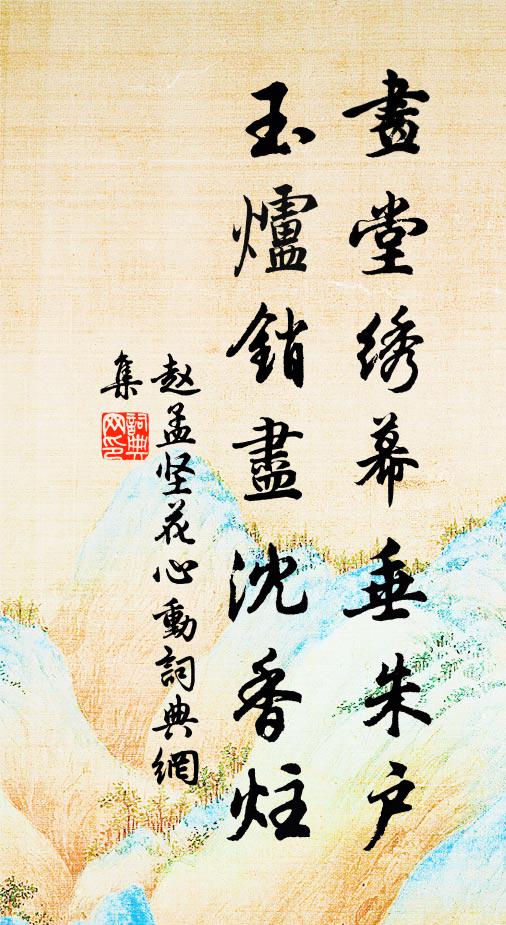 畫堂綉幕垂朱户
玉爐銷盡沈香炷
赵孟坚花心動詞典網
集
詞典网印